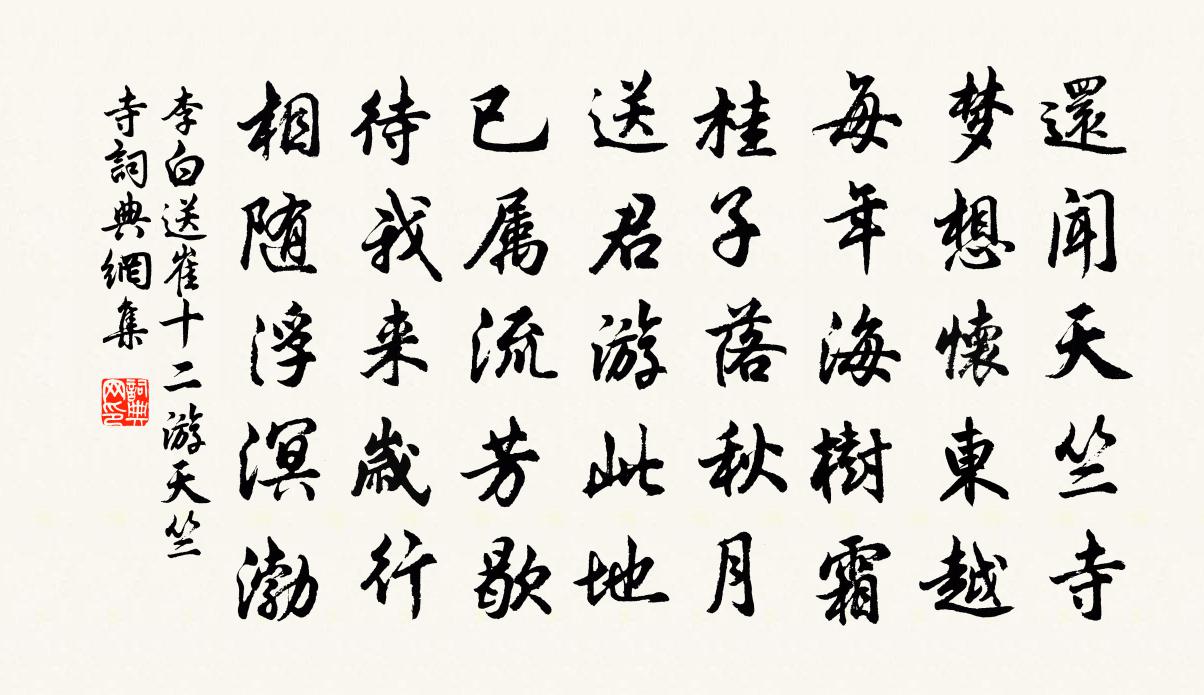 還聞天竺寺
梦想懷東越
每年海樹霜
桂子落秋月
送君游此地
已属流芳歇
待我来歲行
相随浮溟渤
李白送崔十二游天竺
寺詞典網集
詞典
网印